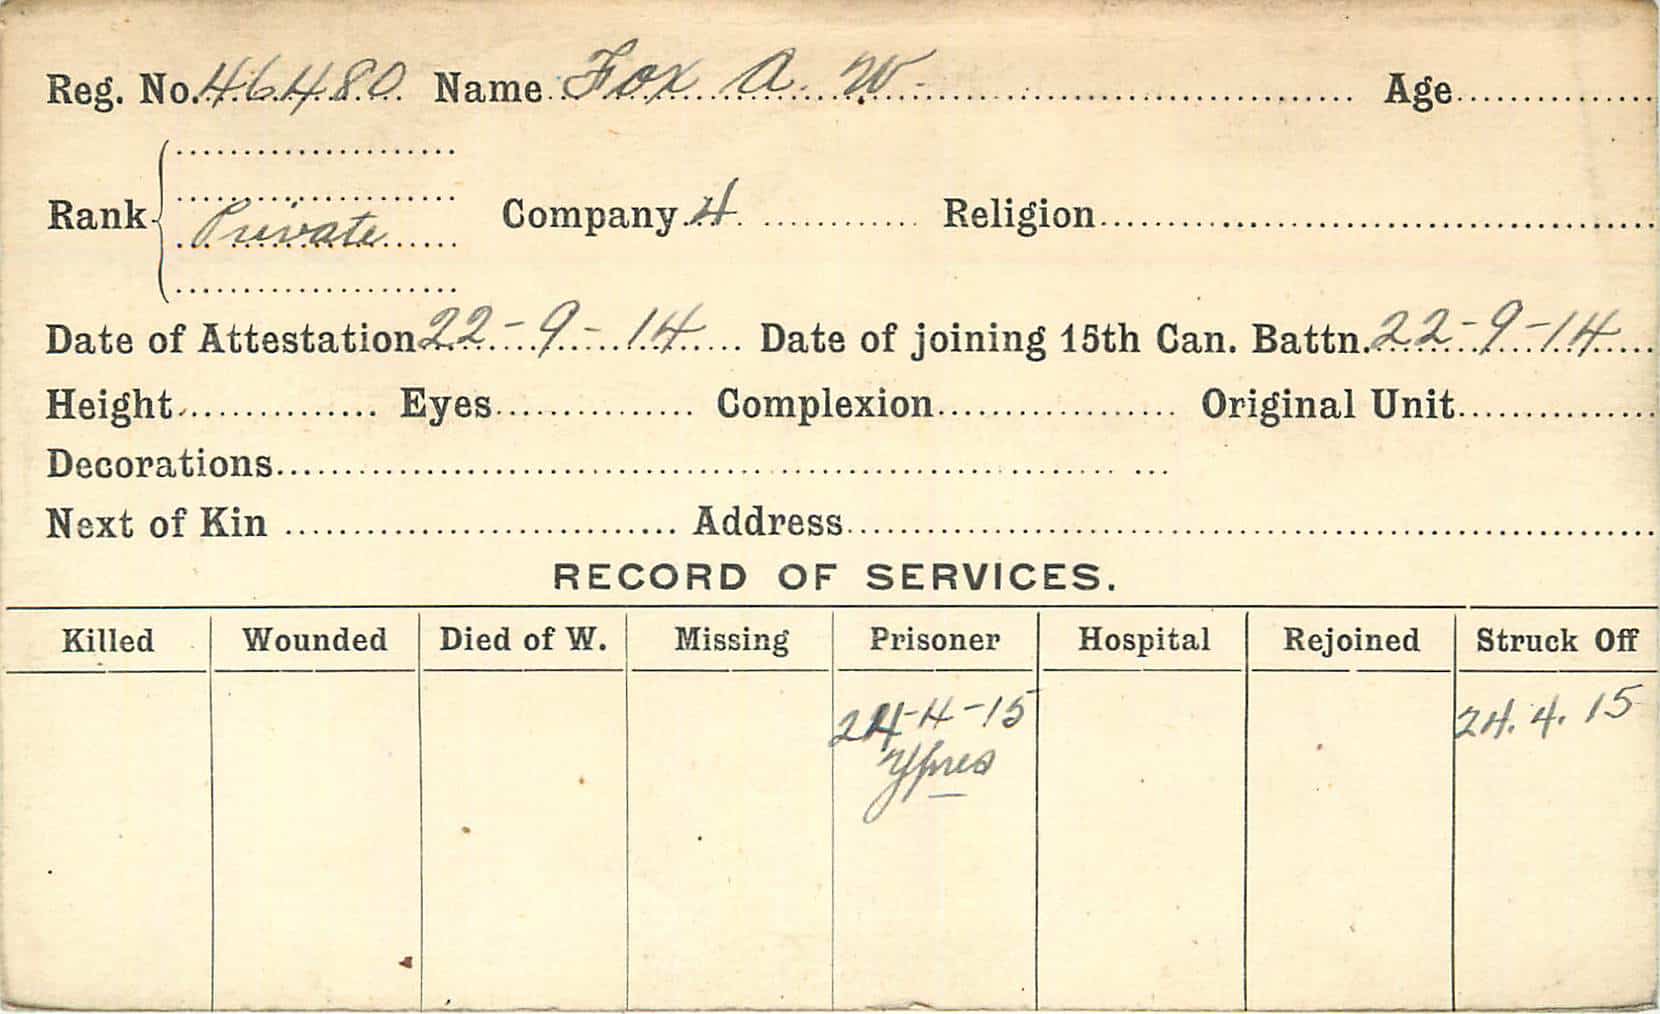 Reg. No. 46480 Name Fox A. W. Age
Rank Private Company 4 Religion
Date of Attestation 22-9-14 Date of joining 15th Can. Battn. 22-9-14
Height Eyes Complexion Original Unit
Decorations
Next of Kin Address
RECORD OF SERVICES.
Killed Wounded Died of W. Missing Prisoner Hospital Rejoined Struck Off
24-4-15 24.4.15
Ypres